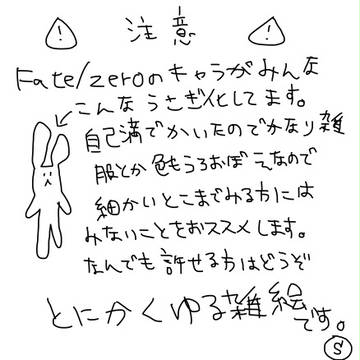 注意
Fate/zeroのキャラがみんな
こんなうさぎ化してます。
自己満でかいたのでかなり雑
服とか色もうろおぼえなので
細かいとこまでみる方には
みないことをおススメします。
なんでも許せる方はどうぞ
とにかくゆる雑絵です。
S